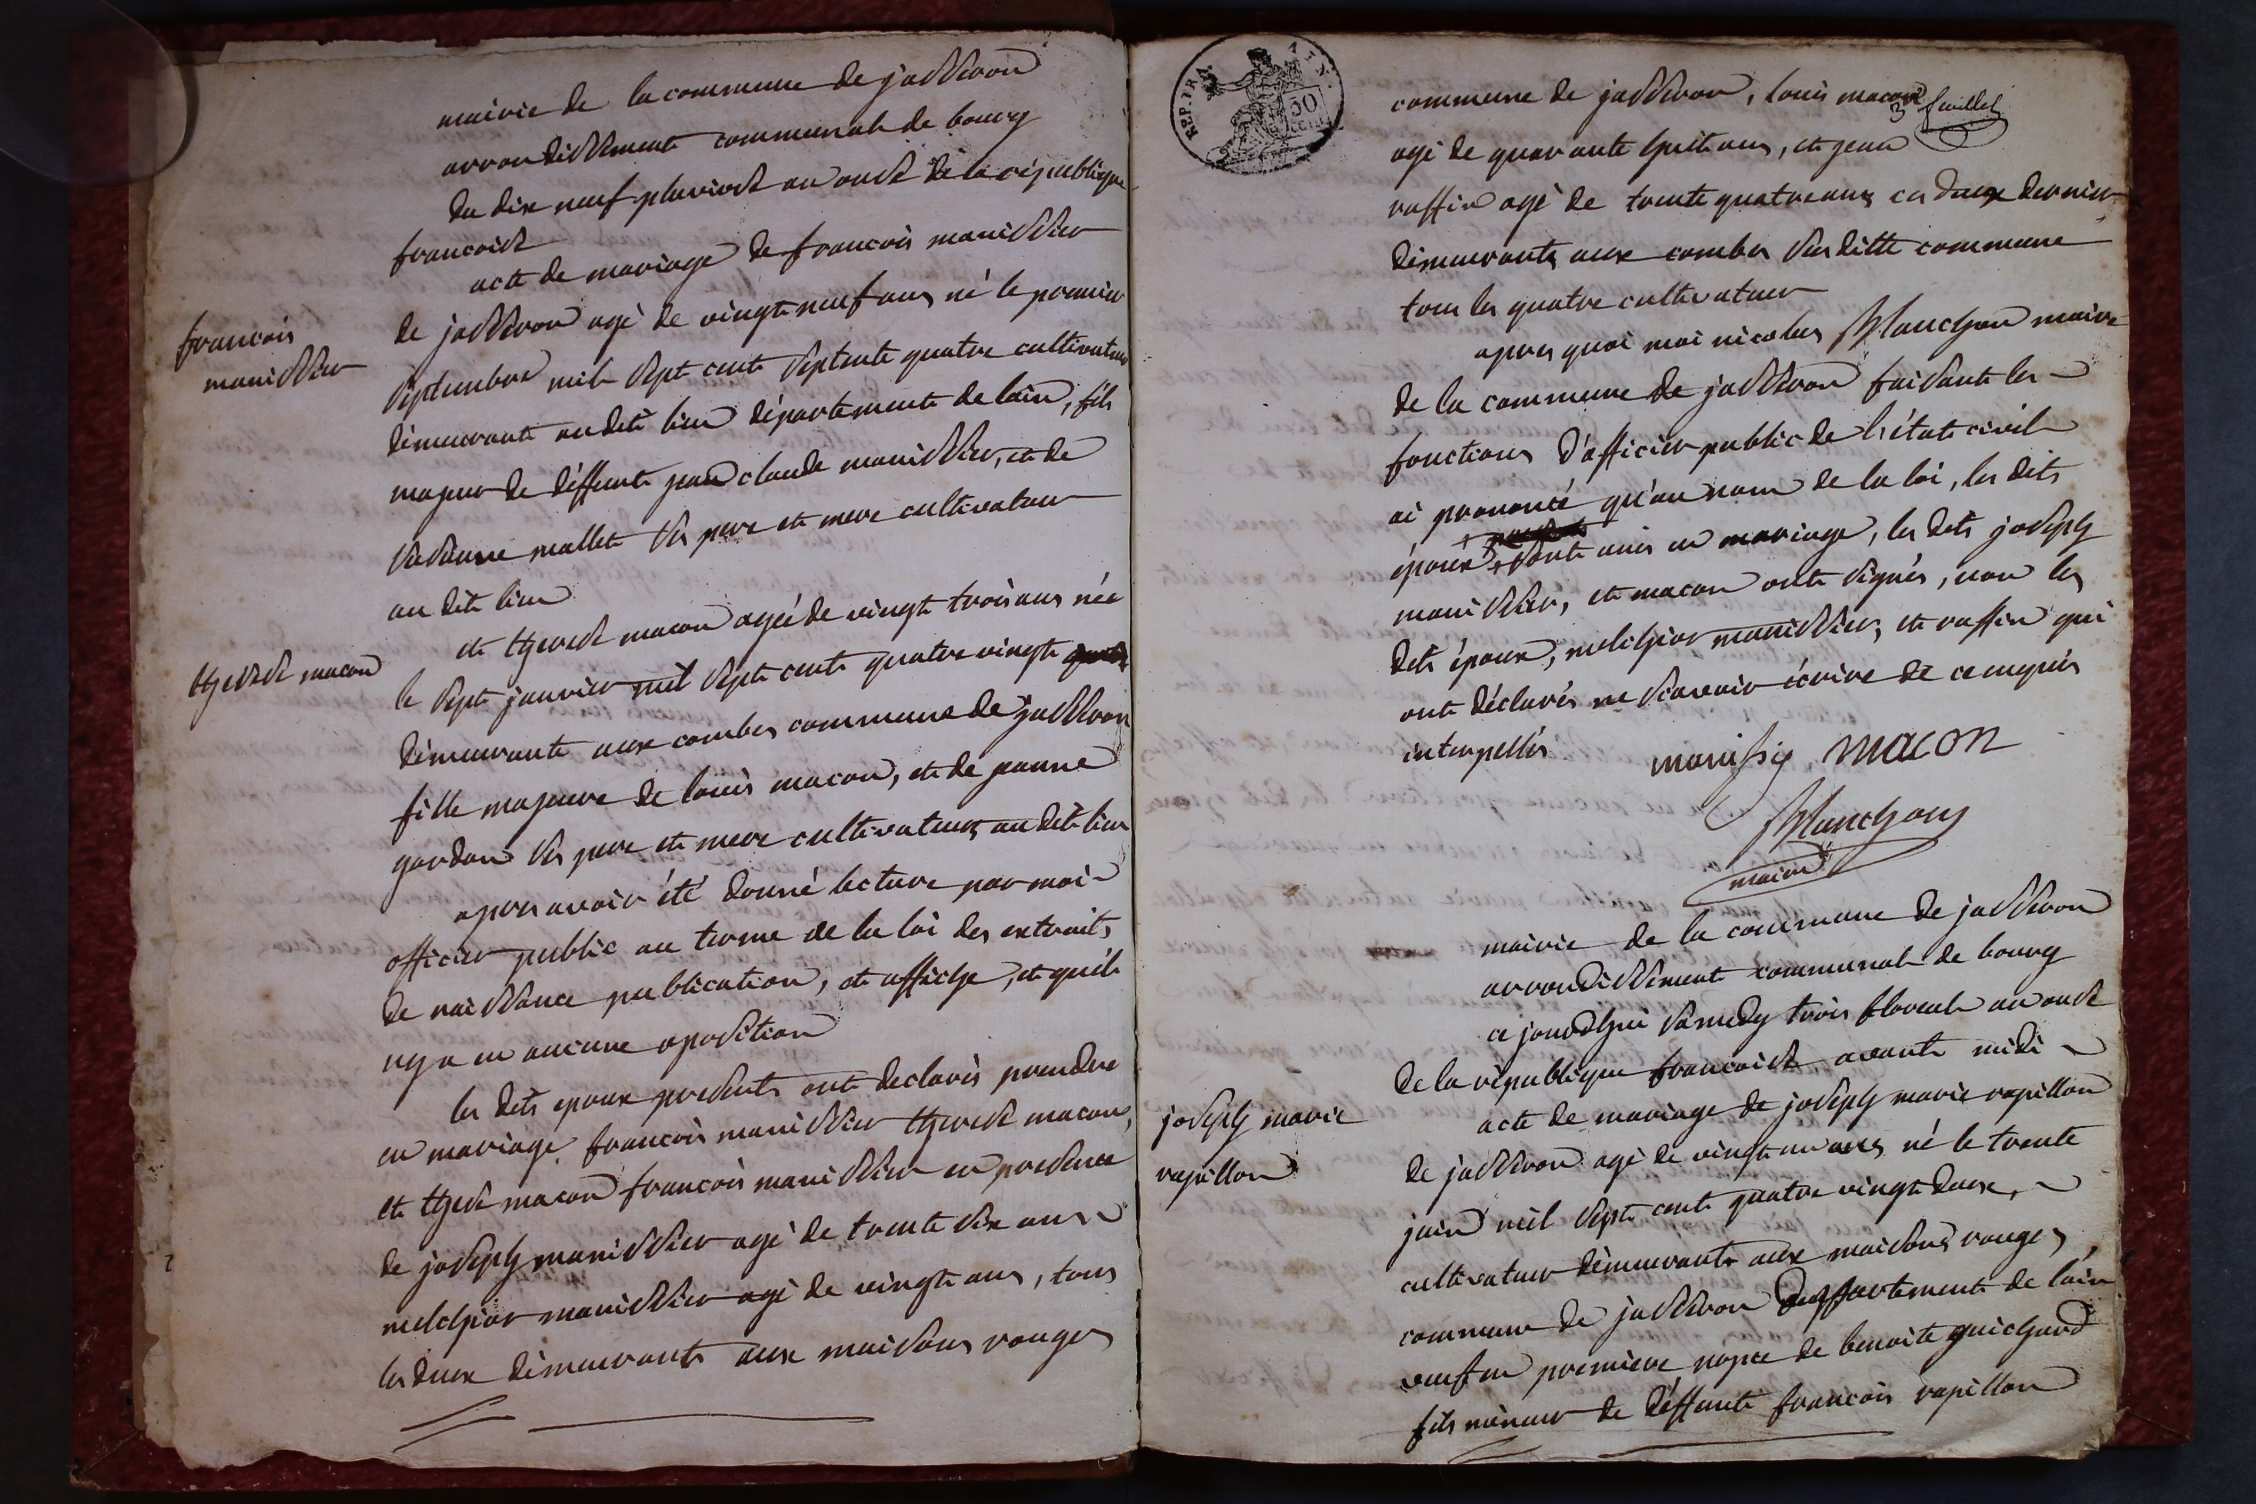 mairie de la commune de jasseron
arrondissement communal de bourg
du dix neuf pluviose an onze de la république
francoise
acte de mariage de francois manissier
francois
manissier
de jasseron agé de vingt neuf ans né le premier
septembre mil sept cent septente quatre cultivateur
démeurant au dit lieu département de lain, fils
majeur de déffunt jean claude manissier, et de
susanne mallet ses pere et mere cultivateur
au dit lieu
et therese macon agée de vingt trois ans née
therese macon
le sept janvier mil sept cent quatre vingt
démeurante aux combes commune de jasseron
fille majeure de louis macon, et de jeanne
gordon ses pere et mere cultivateurs au dit lieu
apres avoir été donné lecture par moi
officier public au terme de la loi des extraits
de naissance publication, et affiche, et quil
ny a eu aucune oposition
les dits epoux presents ont declarés prendre
en mariage francois manissier therese macon,
et therese macon francois manissier en presence
de joseph manissier agé de trente six ans
melchior manissier agé de vingt ans, tous
les deux démeurants aux maisons rouges
REP. FRA.
30
CENT
3 feuillet
commune de jasseron, louis macon
agé de quarante huit ans, et jean
raffin agé de trente quatre ans ces deux dernier
démeurants aux combes susditte commune
tous les quatre cultivateur
apres quoi moi nicolas Planchon maire
de la commune de jasseron faisant les
fonctions d'officier public de l'état civil
ai prononcé qu'au nom de la loi, les dits
époux sont unis en mariage, les dits joseph
manissier, et macon ont signés, non les
dits époux, melchior manissier, et raffin qui
ont déclarés ne scavoir écrire de ce enquis
interpellés
manissie macon
Planchon
maire
mairie de la commune de jasseron
arrondissement communal de bourg
ce jourdhui samedy trois floreal an onze
de la république francoise avant midi
acte de mariage de joseph marie rapillon
joseph marie
rapillon
de jasseron agé de vingt un ans né le trente
juin mil sept cent quatre vingt deux,
cultivateur démeurant aux maisons rouges,
commune de jasseron departement de lain
veuf en premiere nopce de benoite guichard
fils mineur de déffunt francois rapillon